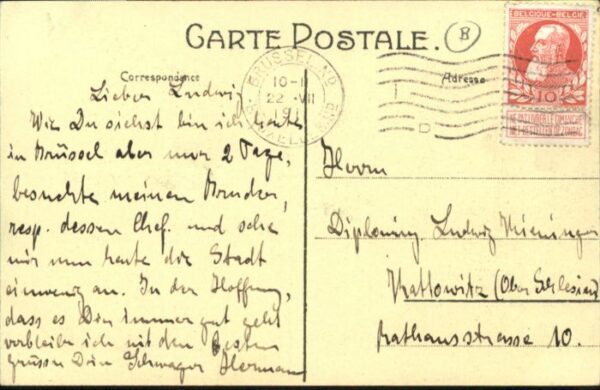 CARTE POSTALE.
B
Correspondance
Adresse
BELGIQUE-BELGIË
10
NE PAS LIVRER LE DIMANCHE
NIET BESTELLEN OP ZONDAG
10-11
22 VII
Lieber Ludwig
Wie Du siehst bin ich heute
in Brüssel aber nur 2 Tage,
besuchte meinen Bruder,
resp. dessen Chef. und sehe
mir nun heute die Stadt
einwenig an. In der Hoffnung,
dass es Dir immer gut geht
verbleibe ich mit den besten
Grüssen Dein Schwager Hermann
Herrn
Diploming. Ludwig
Kattowitz (Ober Schlesien)
Rathausstrasse 10.